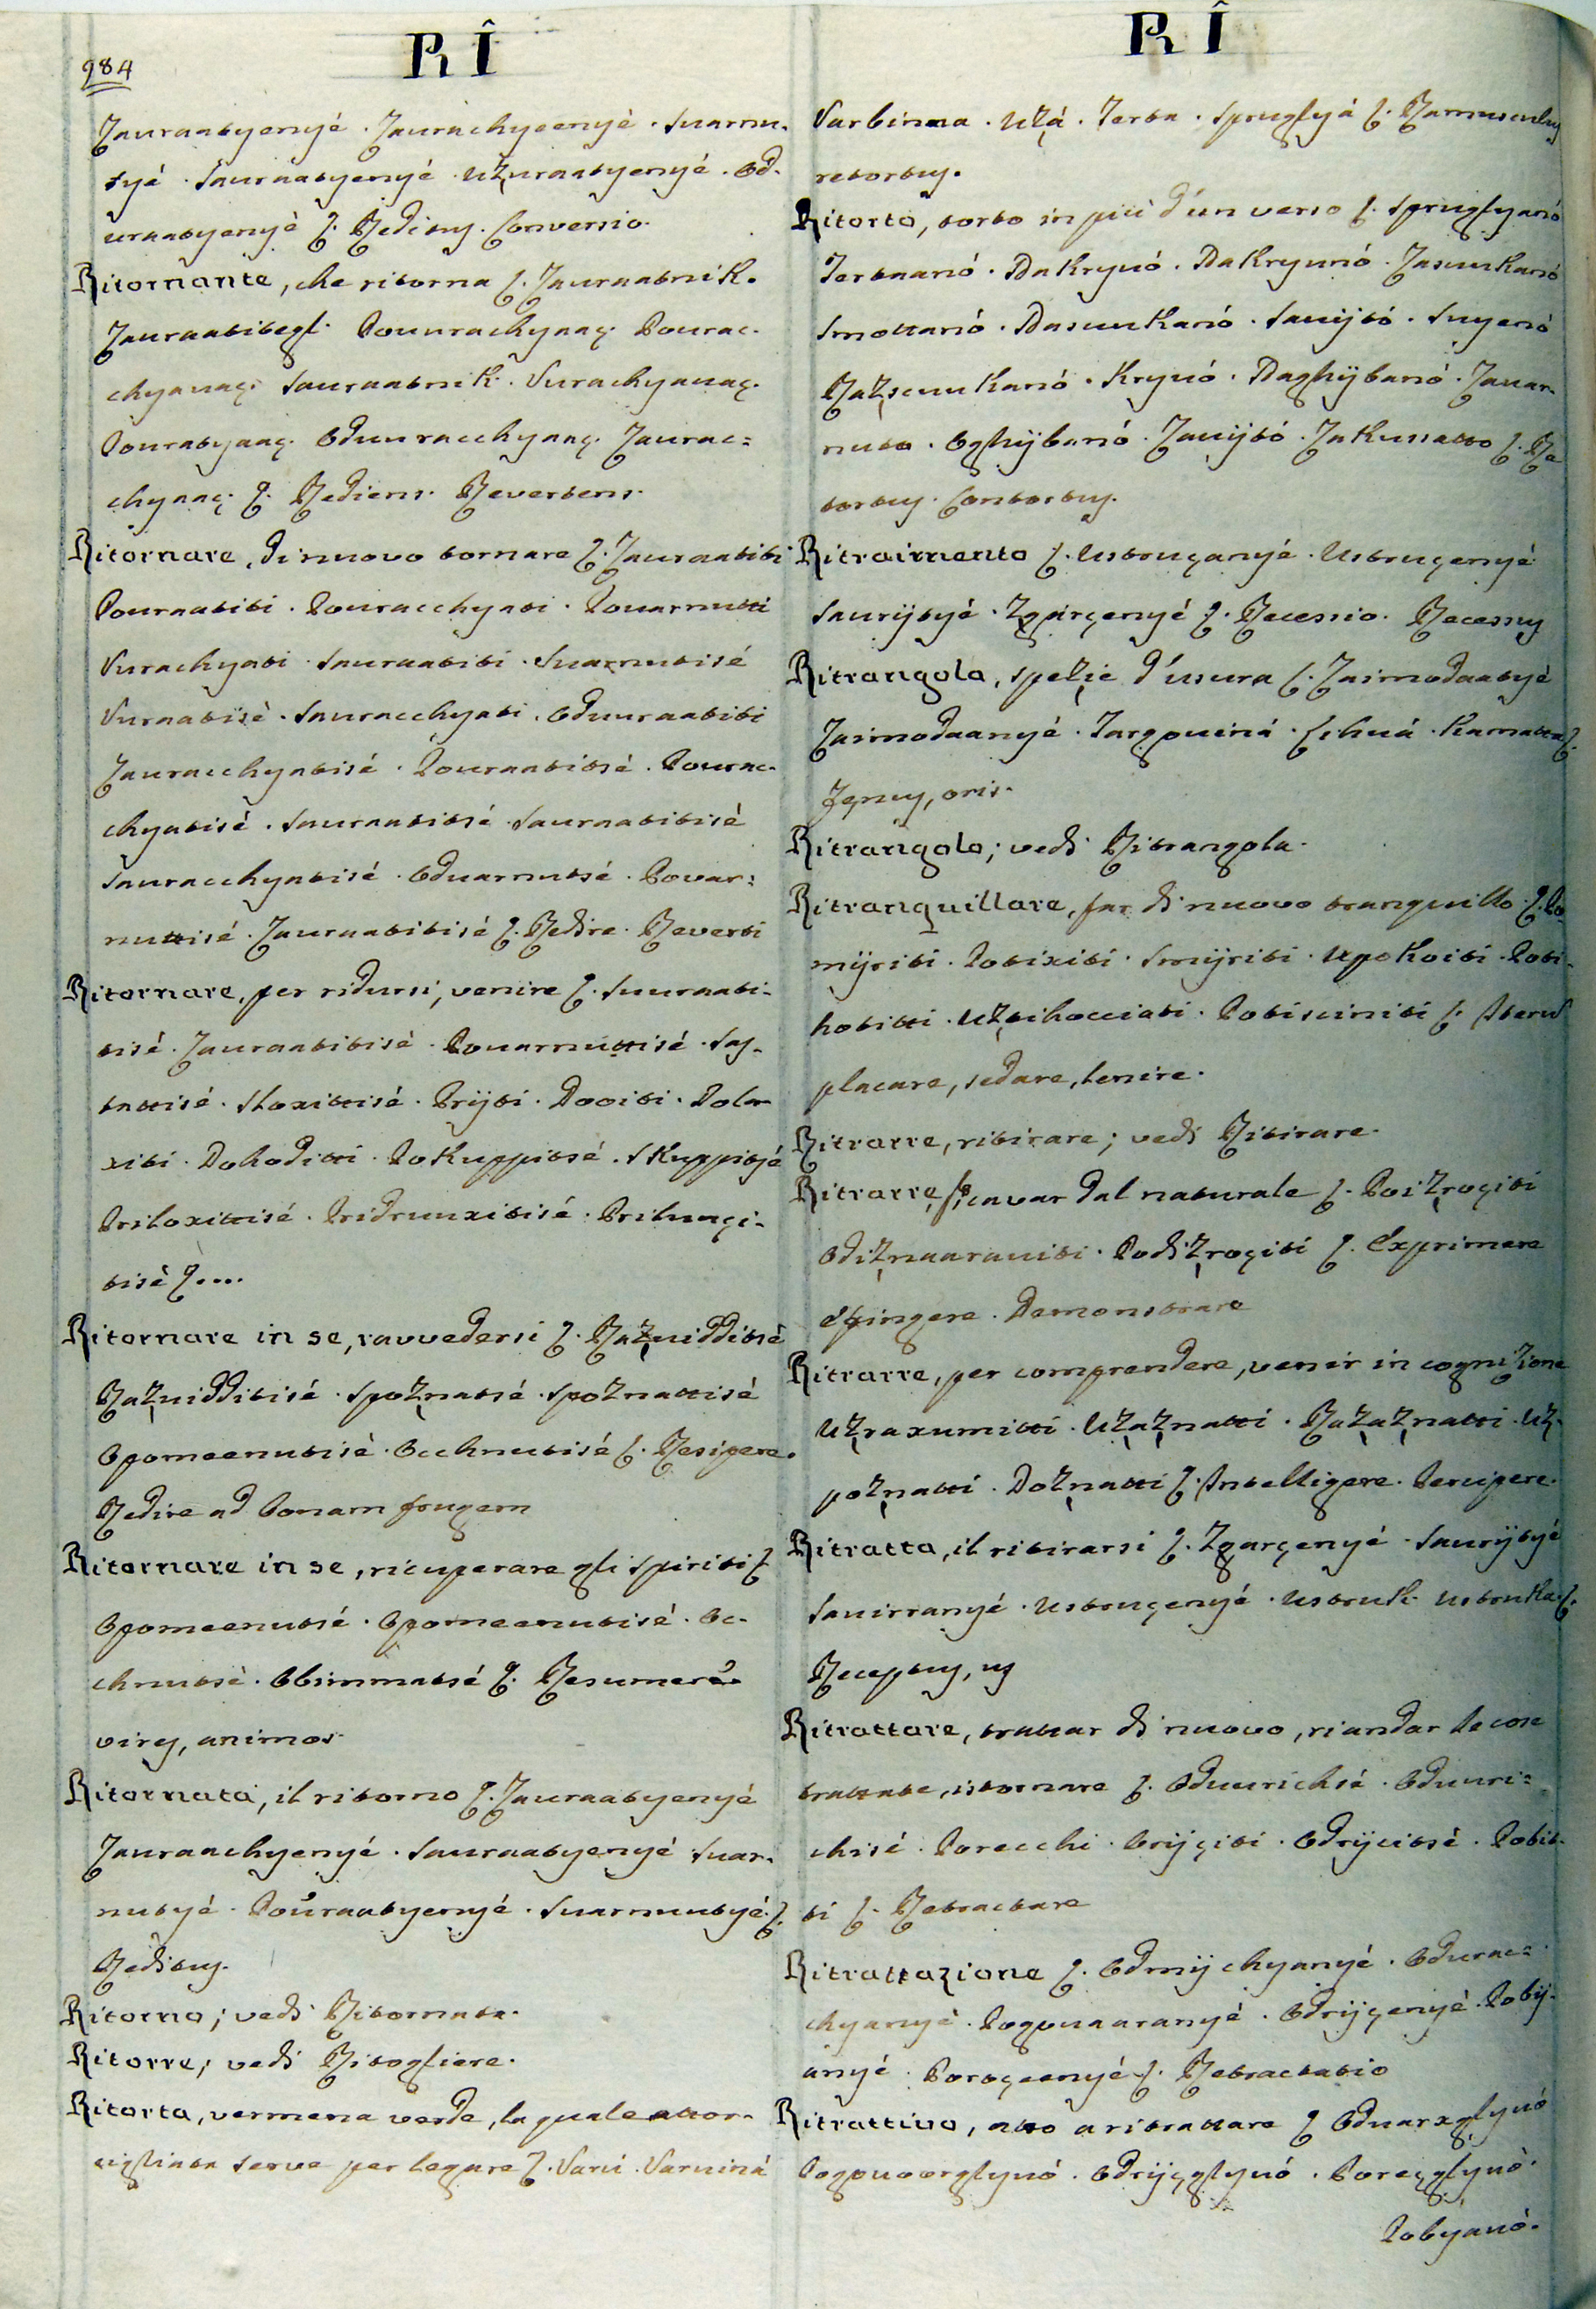 984
RÎ
Zauraatyenyé . Zaurachyeenyé . Suarnu-
tyé . Sauraatyenyé . Uzuraatyenyé . Od-
uraatyenyé ʃ. Reditus. Conversio.
Ritornante, che ritorna ʃ. Zauraatnik.
Zauraatitegl. Pouurachyaaç. Pourac-
chyauaç. Sauraatnik. Vurachyauaç.
Pouratyaaç. Oduuracchyaaç. Zaurac=
chyaaç. ʃ. Rediens. Revertens.
Ritornare, di nuovo tornare ʃ. Zauraatiti
Pouraatiti . Pouracchyati . Pouarnutti
Vurachyati . Sauraatiti . Suarnutisé
Vuraatisé . Sauracchyati . Oduuraatiti
Zauracchyatisé . Pouraatitsé . Pourac-
chyatisé . Sauraatitsé . Sauraatitisé
Sauracchyatisé . Oduarnutsé . Povar=
nuttisé . Zauraatitisé ʃ. Redire. Reverti
Ritornare, per ridursi, venire ʃ. Suuraati-
tisé . Zauraatitisé . Pouarnuttisé . Sas-
tattisé . Sloxittisé . Priyti . Dooiti . Dola-
xiti . Dohoditti . Pokuppitsé . Skuppitsé
Priloxittisé . Pridruuxitisé . Priluuçi-
tisé ʃ....
Ritornare in se, ravvedersi ʃ. Razuidditsé
Razuidditisé . Spoznatsé . Spoznattisé
Opomeenutisé . Occhnutisé ʃ. Resipere.
Redire ad bonam frugem
Ritornare in se, ricuperare gli spiriti ʃ
Opomeenutsé . Opomeenutisé . Oc-
chnutsé . Obsimmatsé ʃ. Resumere
vires, animos.
Ritornata, il ritorno ʃ. Zauraatyenyé
Zauraachyenyé . Sauraatyenyé Suar-
nutyé . Pouraatyenyé . Suarnuutyé ʃ.
Reditus.
Ritorno; vedi Ritornata.
Ritorre; vedi Ritogliere.
Ritorta, vermena verde, la quale attor-
cigliata serve per legare ʃ. Varú . Varuiná
RÎ
Varbinaa . Uzá . Terta . Spruglyá ʃ. Ramusculus
retortus.
Ritorto, torto in più d'un verso ʃ. Spruglyanó
Tertaanó . Dakryuó . Dakryunó . Zasuukanó
Smottanó . Dasuukanó . Sauijtó . Suyenó
Razsuukanó . Kryuó . Daghijbanó . Zauar-
nuto . Oghijbanó . Zauijtó . Zakussatto ʃ. Re
tortus. Contortus.
Ritraimento ʃ. Ustruçanyé . Ustruçenyé
Saurijtyé . Zgarçenyé ʃ. Recessio. Recessus
Ritrangola, spezie d'usura ʃ. Zaimodaatyé
Zaimodaanyé . Targouiná . Lchuá . Kamatta ʃ.
Fenus, oris.
Ritrangolo; vedi Ritrangola.
Ritranquillare, far di nuovo tranquillo ʃ. Po-
mijriti . Potixiti . Smijriti . Upokoiti . Poti-
hotitti . Uztihocciati . Potisciniti ʃ. Iterum
placare, sedare, lenire.
Ritrarre, ritirare; vedi Ritirare.
Ritrarre, cavar dal naturale ʃ. Poizroçiti
Odiznaarauiti . Podizroçiti ʃ. Exprimere
Effingere . Demonstrare
Ritrarre, per comprendere, venir in cognizione
Uzraxumitti . Uzaznatti . Razaznatti . Uz-
poznatti . Doznatti ʃ. Intelligere. Percipere.
Ritratta, il ritirarsi ʃ. Zgarçenyé . Saurijtyé
Sauirranyé . Ustruçenyé . Ustruk . Ustruka ʃ.
Receptus, us
Ritrattare, trattar di nuovo, riandar le cose
trattate, istornare ʃ. Oduurichsé . Oduuri=
chisé . Porecchi . Orijçiti . Odrijcitsé . Pobit-
ti ʃ. Retractare
Ritrattazione ʃ. Odmijchyanyé . Odurac=
chyanyé . Pogouaaranyé . Odrijçenyé . Pobij-
anyé . Poroçeenyé ʃ. Retractatio
Ritrattivo, atto a ritrattare ʃ Oduarxglyuó
Pogouoorglyuó . Odrijçglyuó . Poreçglyuó.
Pobyauó.